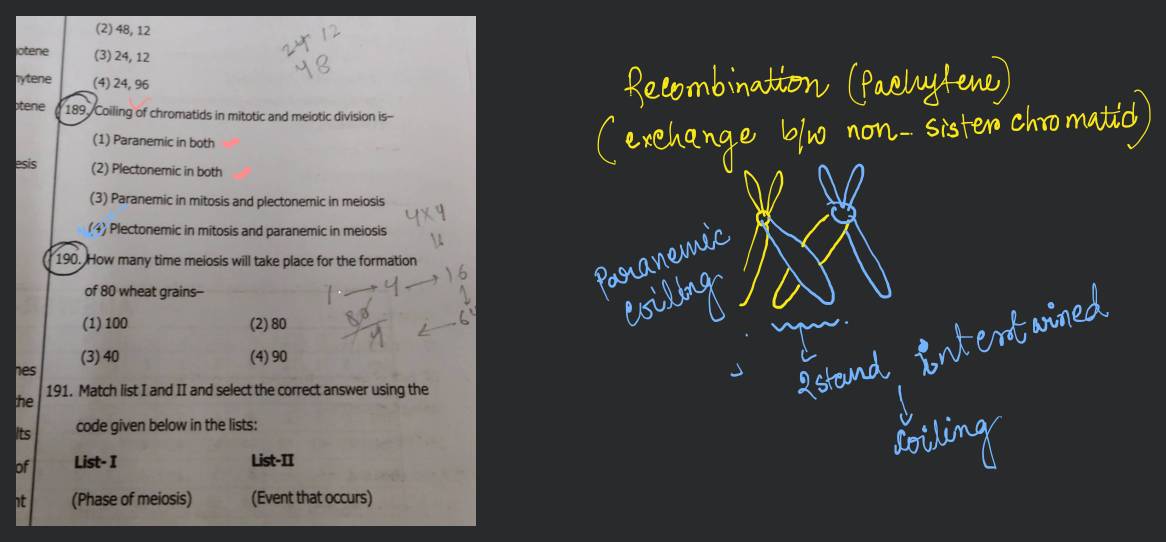 (2) 48, 12
otene
(3) 24, 12
24 12
48
hytene
(4) 24, 96
otene
189. Coiling of chromatids in mitotic and meiotic division is–
(1) Paranemic in both
esis
(2) Plectonemic in both
(3) Paranemic in mitosis and plectonemic in meiosis
(4) Plectonemic in mitosis and paranemic in meiosis
4x4
190. How many time meiosis will take place for the formation
of 80 wheat grains–
1 → 4 → 16
80
4
(1) 100 (2) 80
(3) 40 (4) 90
nes
191. Match list I and II and select the correct answer using the
he
code given below in the lists:
lts
List- I List-II
of
(Phase of meiosis) (Event that occurs)
nt
Recombination (Pachytene)
(exchange b/w non- sister chromatid)
Paranemic
coiling
2 stand intertwined
coiling